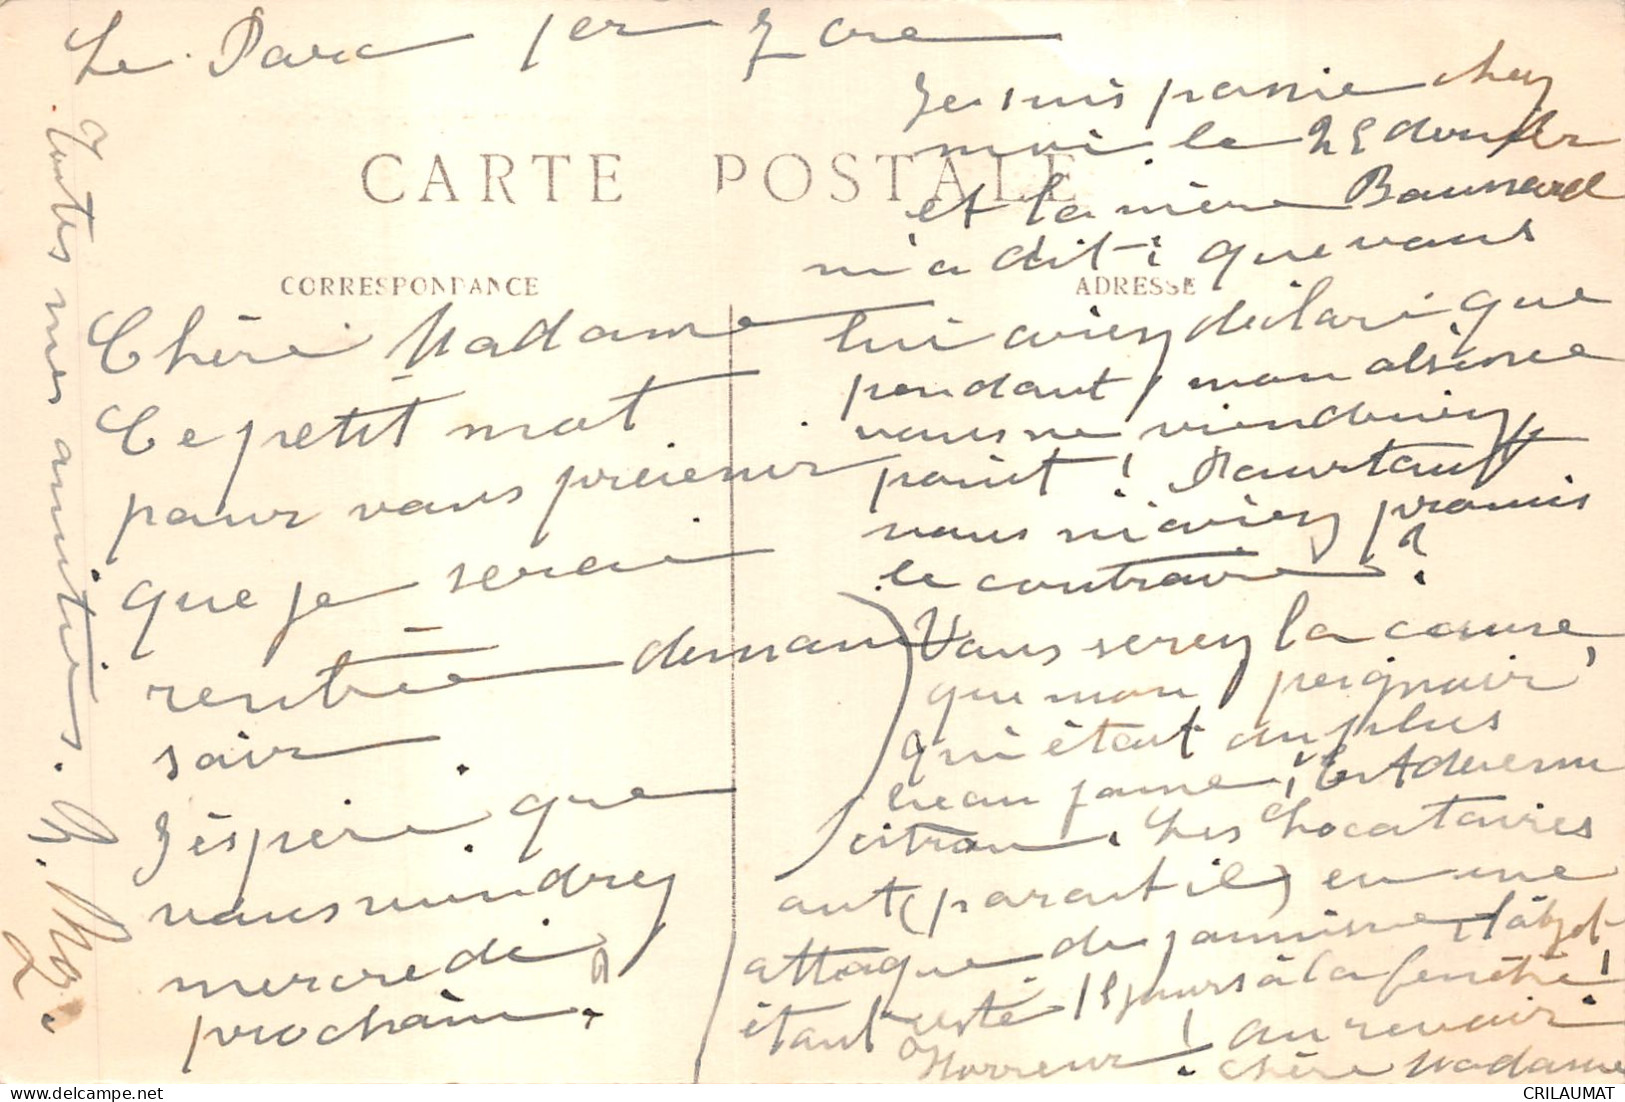 Le Parc 1er 7bre
CARTE POSTALE
CORRESPONDANCE
ADRESSE
Chère Madame
Ce petit mot
pour vous prévenir
que je serai
rentrée demain
soir.
J'éspère que
vous viendrez
mercredi
prochain?
Je suis passée chez
moi le 25
et la mère
m'a dit: que vous
lui aviez déclaré que
pendant mon absence
vous ne viendriez
point! Pourtant
vous m'aviez promis
le contraire?
Vous serez la cause,
que mon peignoir
qui était du plus
beau jaune, Est Advenu
citron. Les Locataires
ont (parait il) eu une
attaque de jaunisse, l'objet
étant resté 15 jours à la fenêtre!
Horreur! au revoir
chère Madame
Toutes mes amitiés.
CRILAUMAT